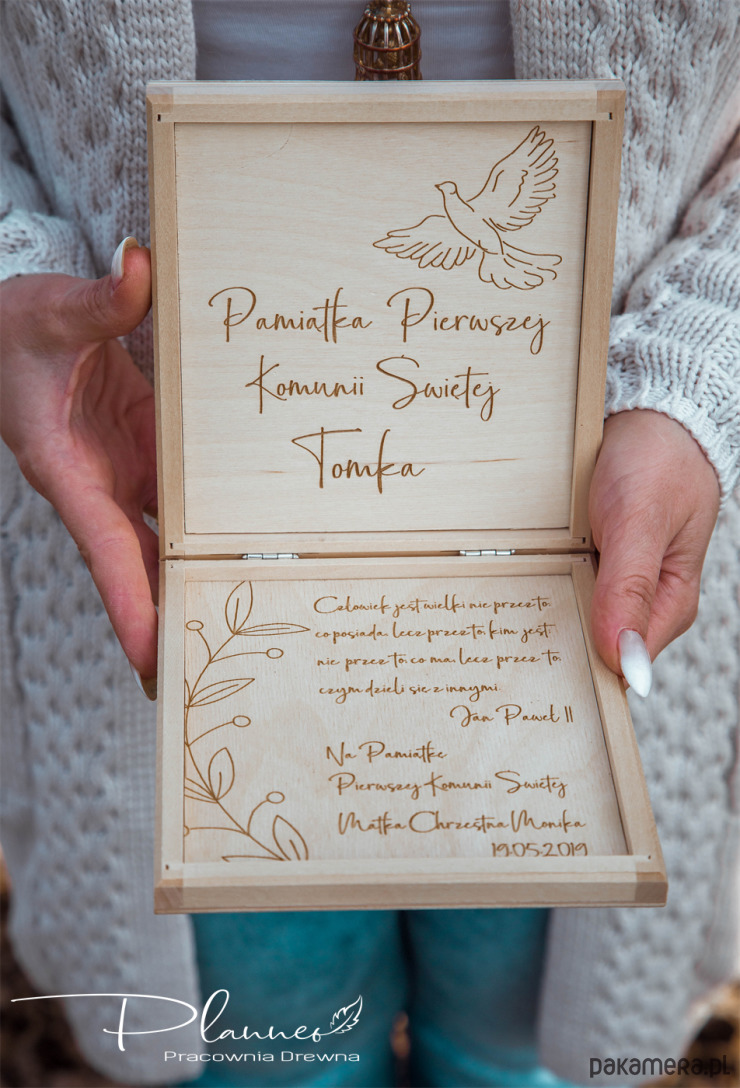 Pamiątka Pierwszej
Komunii Świętej
Tomka
Człowiek jest wielki nie przez to,
co posiada, lecz przez to, kim jest;
nie przez to, co ma, lecz przez to,
czym dzieli się z innymi.
Jan Paweł II
Na Pamiątkę
Pierwszej Komunii Świętej
Matka Chrzestna Monika
19.05.2019
Planneo
Pracownia Drewna
pakamera.pl